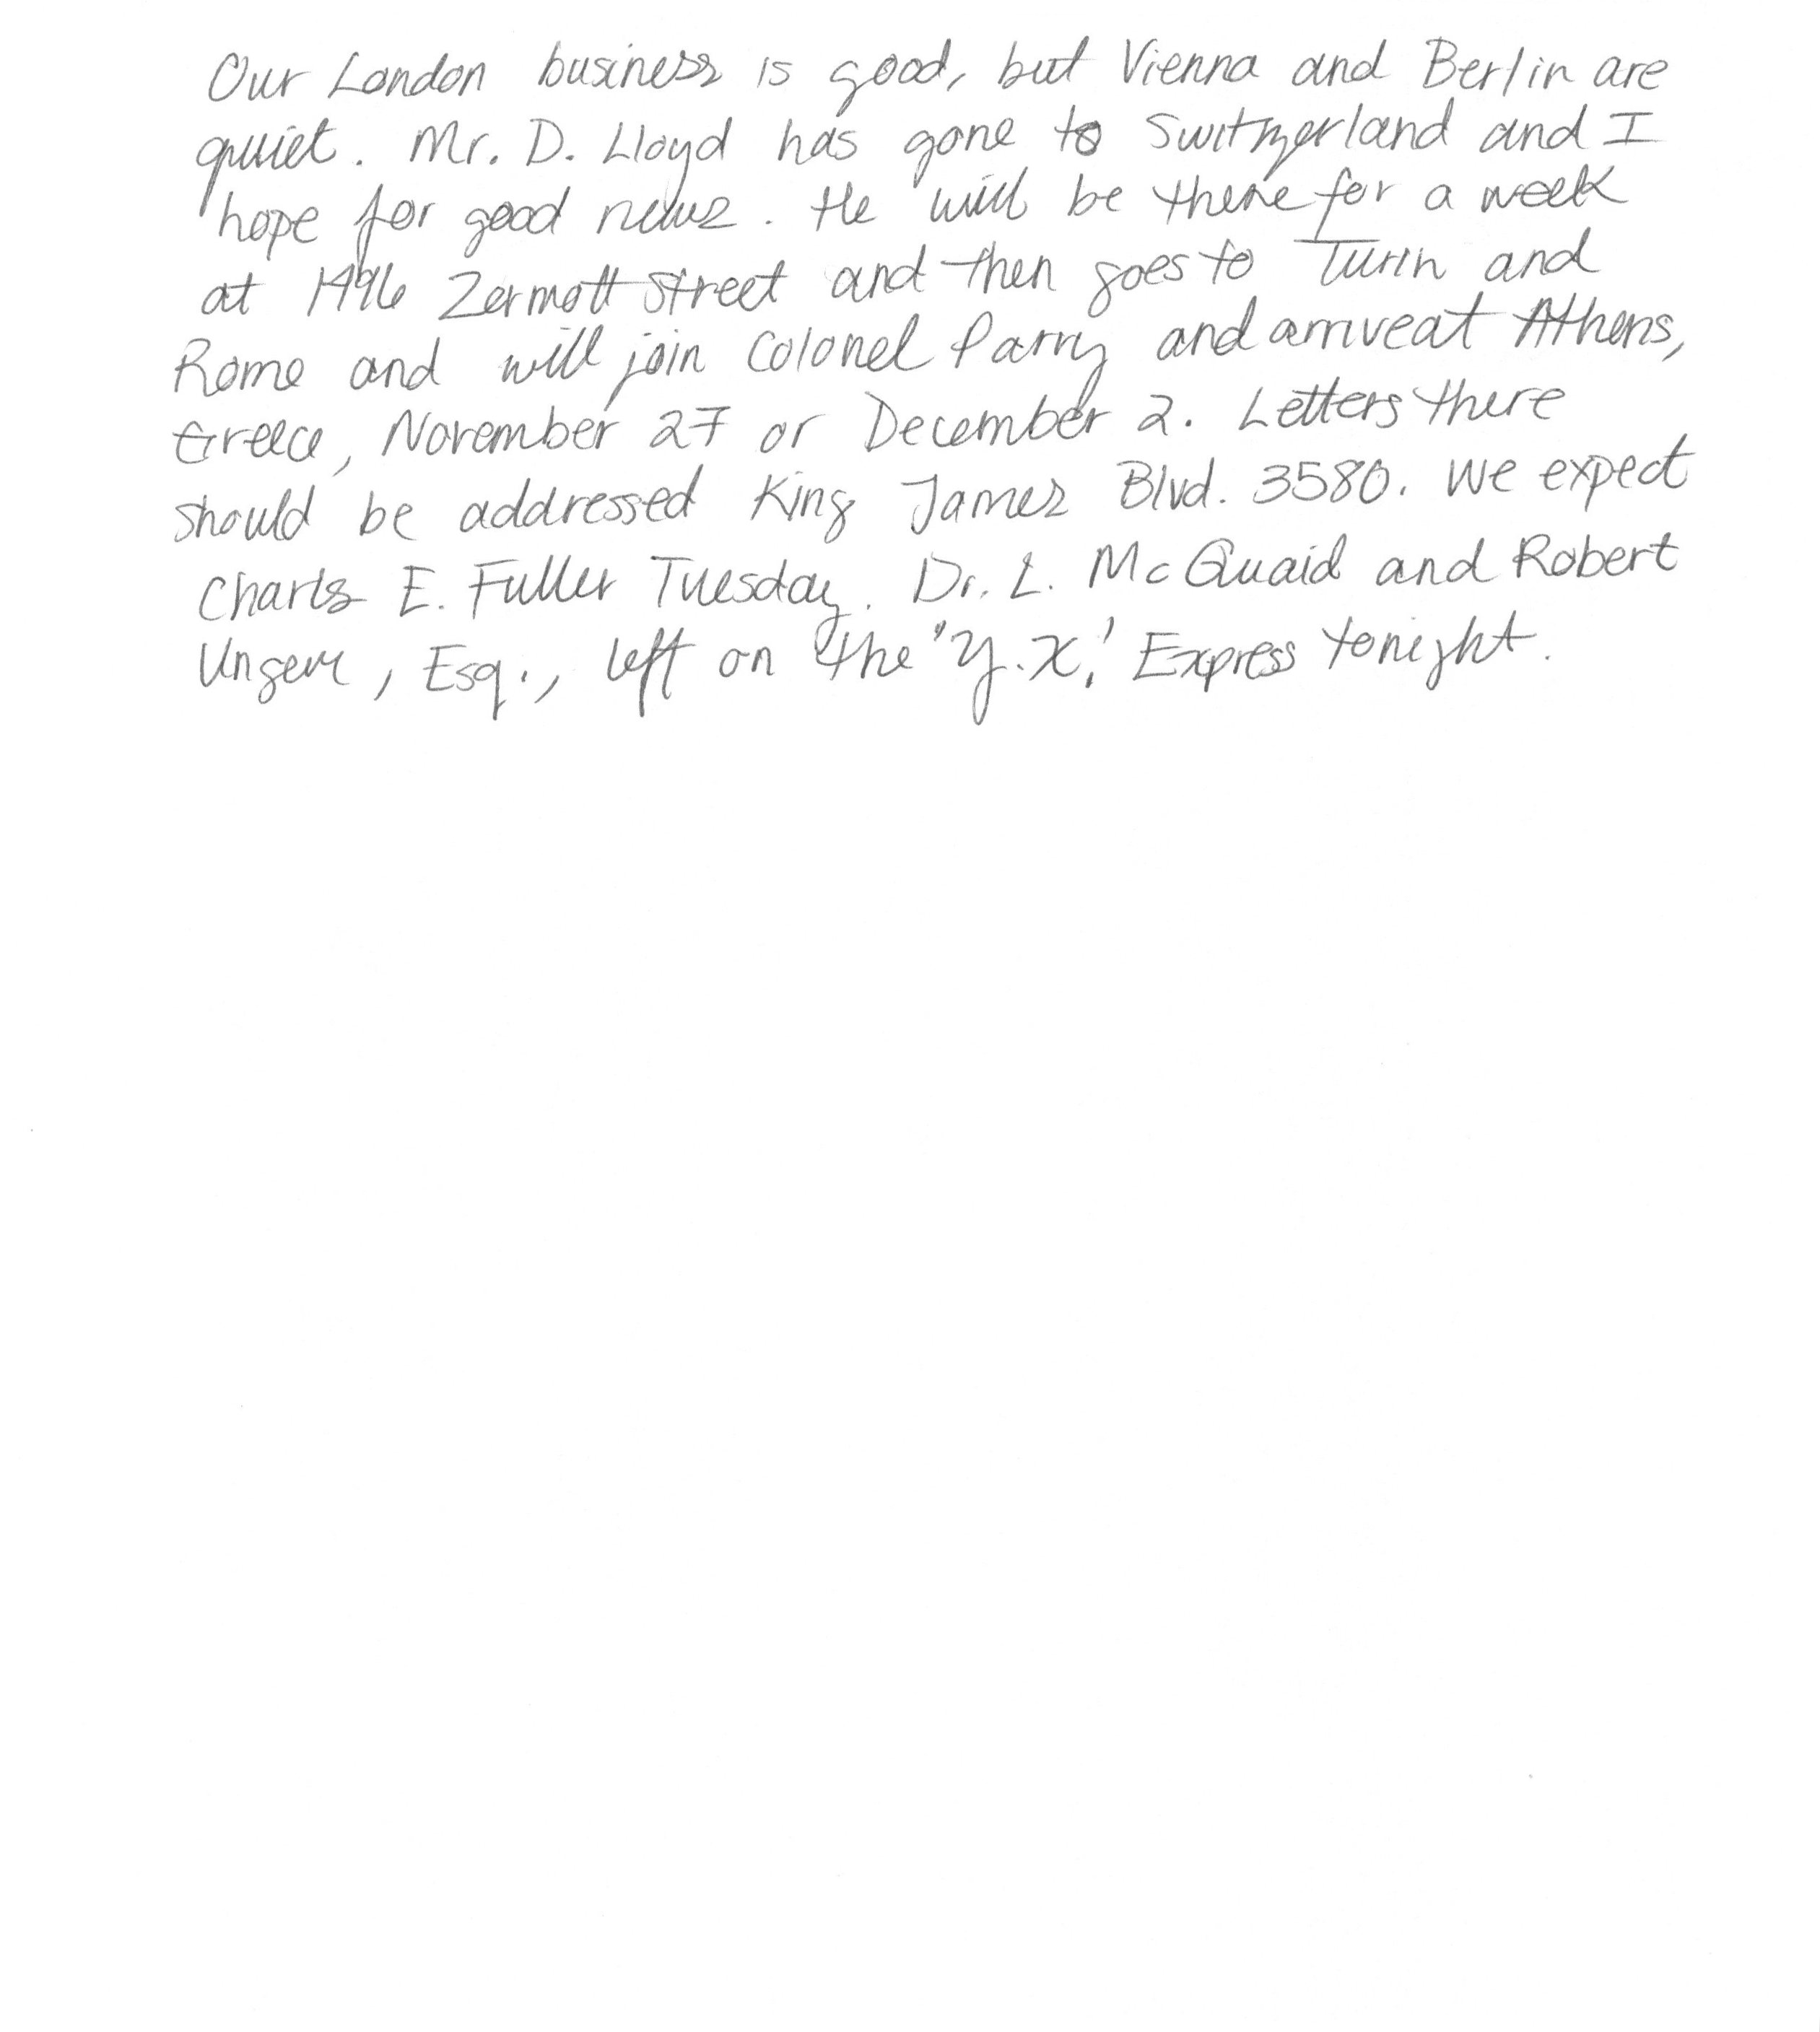 Our London business is good, but Vienna and Berlin are
quiet. Mr. D. Lloyd has gone to Switzerland and I
hope for good news. He will be there for a week
at 1496 Zermott Street and then goes to Turin and
Rome and will join Colonel Parry and arrive at Athens,
Greece, November 27 or December 2. Letters there
should be addressed King James Blvd. 3580. We expect
Charles E. Fuller Tuesday. Dr. L. McQuaid and Robert
Unger, Esq., left on the 'Y.X.' Express tonight.